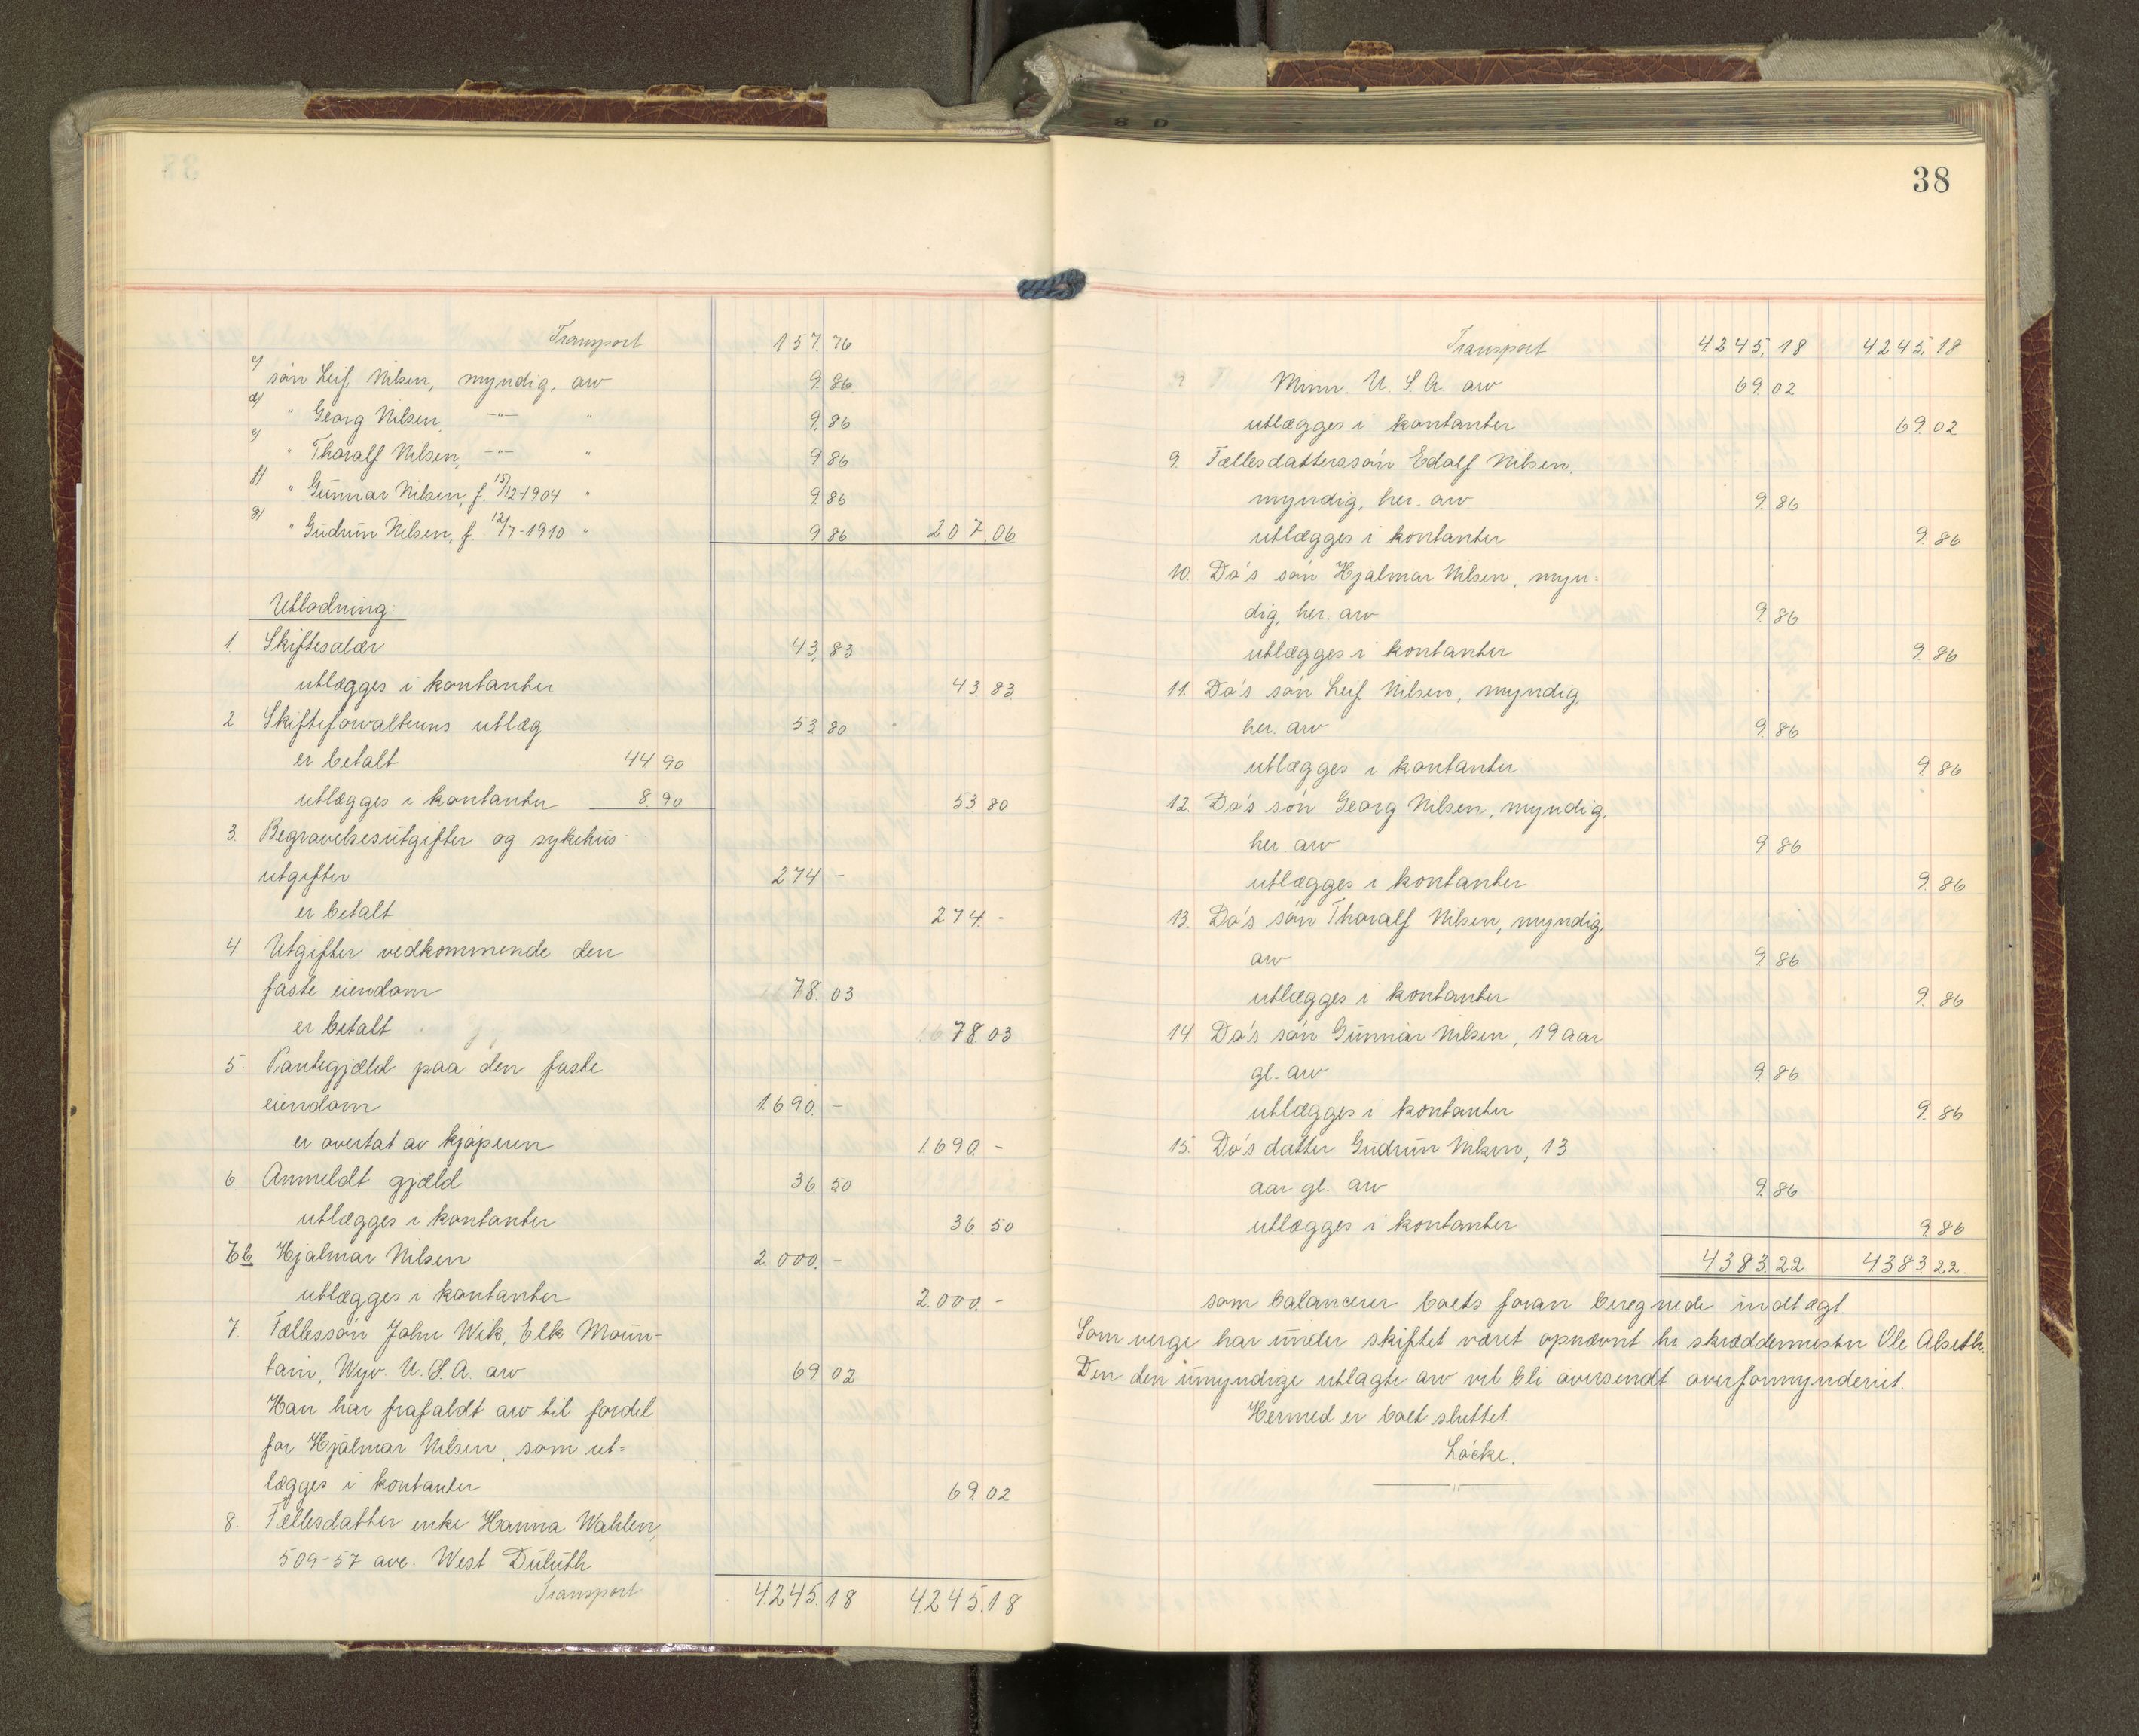 Transport 157.76
c) søn Leif Nilsen, myndig, arv 9.86
d) " Georg Nilsen, —"— " 9.86
e) " Thoralf Nilsen, —"— " 9.86
f) " Gunnar Nilsen, f. 15/12-1904 " 9.86
g) " Gudrun Nilsen, f. 12/7-1910 " 9.86 207.06
Utlodning:
1. Skiftesalær 43.83
utlægges i kontanter 43.83
2. Skifteforvalterens utlæg 53.80
er betalt 44.90
utlægges i kontanter 8.90 53.80
3. Begravelsesutgifter og sykehus-
utgifter 274 -
er betalt 274.-
4. Utgifter vedkommende den
faste eiendom 78.03
er betalt 78.03
5. Pantegjæld paa den faste
eiendom 1.690.-
er overtat av kjøperen 1.690.-
6. Anmeldt gjæld 36.50
utlægges i kontanter 36.50
b Hjalmar Nilsen 2.000.-
utlægges i kontanter 2.000.-
7. Fællessøn John Wik, Elk Moun-
tain, Wyo. U.S.A. arv 69.02
Han har frafaldt arv til fordel
for Hjalmar Nilsen, som ut=
lægges i kontanter 69.02
8. Fællesdatter enke Hanna Wahlen,
509-57 ave. West Duluth
Transport 4.245.18 4.245.18
38
Transport 4245.18 4245.18
Minn. U.S.A. arv 69.02
utlægges i kontanter 69.02
9. Fællesdatterssøn Edolf Nilsen,
myndig, her. arv 9.86
utlægges i kontanter 9.86
10. Do's søn Hjalmar Nilsen, myn=
dig, her. arv 9.86
utlægges i kontanter 9.86
11. Do's søn Leif Nilsen, myndig,
her. arv 9.86
utlægges i kontanter 9.86
12. Do's søn Georg Nilsen, myndig,
her. arv 9.86
utlægges i kontanter 9.86
13. Do's søn Thoralf Nilsen, myndig,
arv 9.86
utlægges i kontanter 9.86
14. Do's søn Gunnar Nilsen, 19 aar
gl. arv 9.86
utlægges i kontanter 9.86
15. Do's datter Gudrun Nilsen, 13
aar gl. arv 9.86
utlægges i kontanter 9.86
4383.22 4383.22
som balancerer boets foran beregnede indtægt
Som verge har under skiftet været opnævnt hr skræddermester Ole Alseth.
Den den umyndige utlagte arv vil bli oversendt overformynderiet.
Hermed er boet sluttet
Løcke.